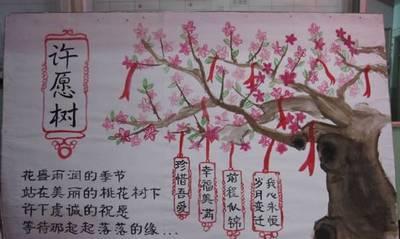 许愿树
花盛雨润的季节
站在美丽的桃花树下
许下虔诚的祝愿
等待那起起落落的缘...
珍惜吾爱
幸福美满
前程似锦
我心永恒
岁月变迁